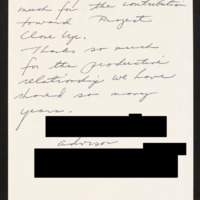 much for the contribution
toward Project
Close Up.
Thanks so much
for the productive
relationship we have
shared so many
years.
advisor